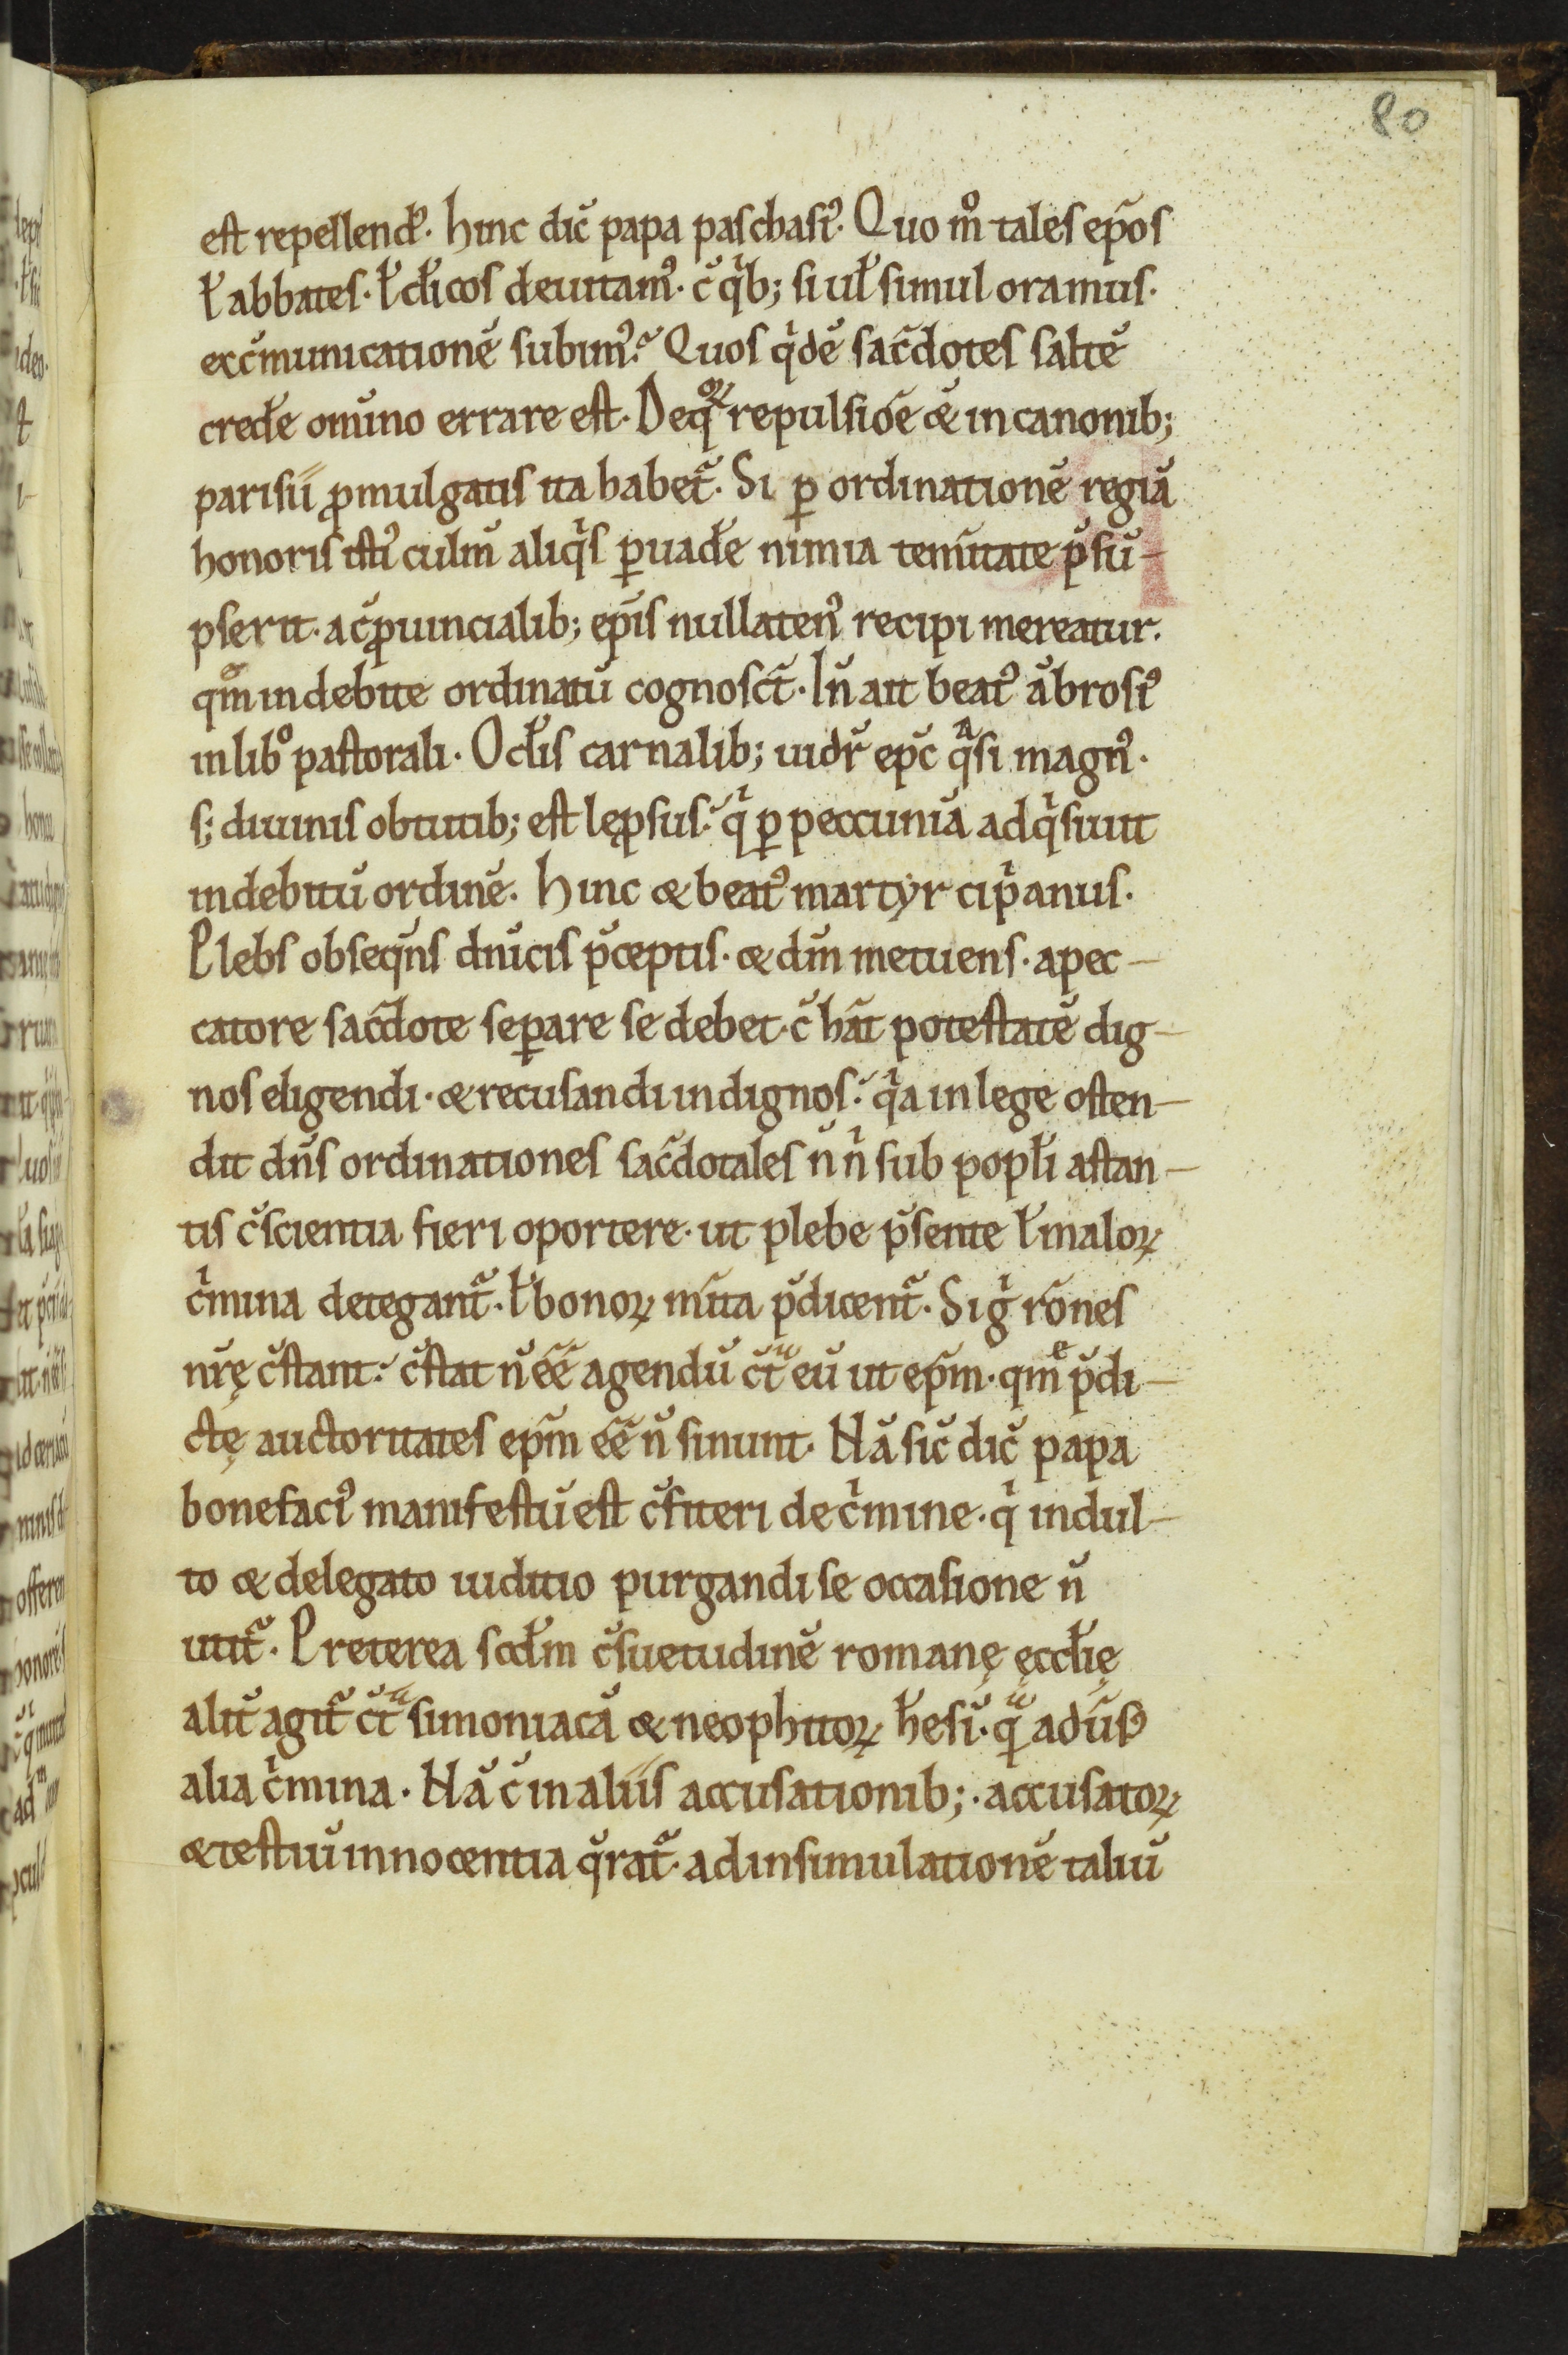 80
est repellendꝰ. hinc dic̄ papa paschasiꝰ. Quo mͦ tales ep̄os
ł abbates. ł cłicos deuitamꝰ. c̄ qͥb; si uł simul oramus.
exc̄municationē subimꝰ? Quos qͥdē sac̄dotes saltē
cred̄e om̄ino errare est. De qͦꝝ repulsiōe & in canonib;
parisii ꝓmulgatis ita habet᷑. Si ꝑ ordinationē regiā
honoris istiꝰ culm̄ aliqͥs ꝑuad̄e nimia tem̄itate p̄sū-
pserit. a c̄ꝓuincialib; ep̄is nullatenꝰ recipi mereatur.
qm̄ͦ indebite ordinatū cognosct᷑. Un̄ ait beatꝰ ābrosiꝰ
in libͦ pastorali. Oc̄lis carnalib; uidr̄ ep̄c qᷓsi magnꝰ.
s; diuinis obtutib; est lęp̲sus? qͥ ꝑ peccuniā adqͥsiuit
indebitū ordinē. hinc & beatꝰ martyr cipͥanus.
Plebs obseq̄ns dn̄icis p̄ceptis. & dm̄ metuens. a pec-
catore sac̄dote seꝑare se debet. c̄ hāt potestatē dig-
nos eligendi. & recusandi indignos? qͥa in lege osten-
dit dn̄s ordinationes sac̄dotales n̄ nͥ sub popłi astan-
tis c̄scientia fieri oportere. ut plebe p̄sente ł maloꝝ
cͥmina detegant᷑. ł bonoꝝ m̄ita p̄dicent᷑. Si gͥ rōnes
nr̄ę c̄stant? c̄stat n̄ ēē agendū c̄tᷓ eū ut ep̄m. qm̄ͤ p̄di-
ctę auctoritates ep̄m ēē n̄ sinunt. Nā sic̄ dic̄ papa
bonefaciꝰ manifestū est c̄fiteri de cͥmine. qͥ indul-
to & delegato iuditio purgandi se occasione n̄
utit᷑. Preterea sc̄dm c̄suetudinē romanę ęccłię
alit̄ agit᷑ c̄tᷓ simoniacā & neophitoꝝ h̄esī. qᷓ adūsꝰ
alia cͥmina. Nā c̄ in aliis accusationib;. accusatoꝝ
& testiū innocentia q̄rat᷑. ad insimulationē taliū